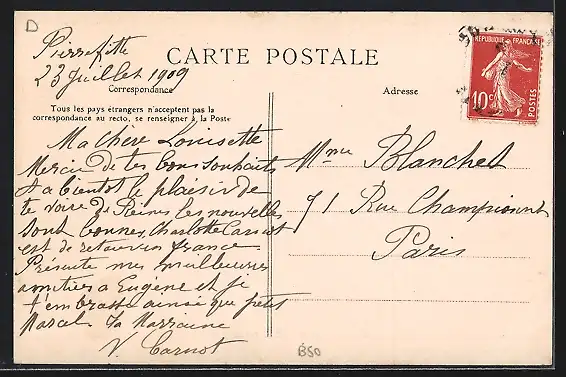 D
Pierrefitte
23 Juillet 1909
CARTE POSTALE
Correspondance
Adresse
Tous les pays étrangers n'acceptent pas la
correspondance au recto, se renseigner à la Poste
RÉPUBLIQUE FRANÇAISE
10c
POSTES
Ma chère Louisette
Merci de tes bons souhaits
A bientôt le plaisir de
te voire de Reims les nouvelles
sont bonnes, Charlotte Carnot
est de retour en france
Présente mes meilleures
amitiers a Eugene et je
t'embrasse ainsi que petit
Marcel ta Marraine
V. Carnot
Mme Blanchet
71 Rue Championnet
Paris
B50